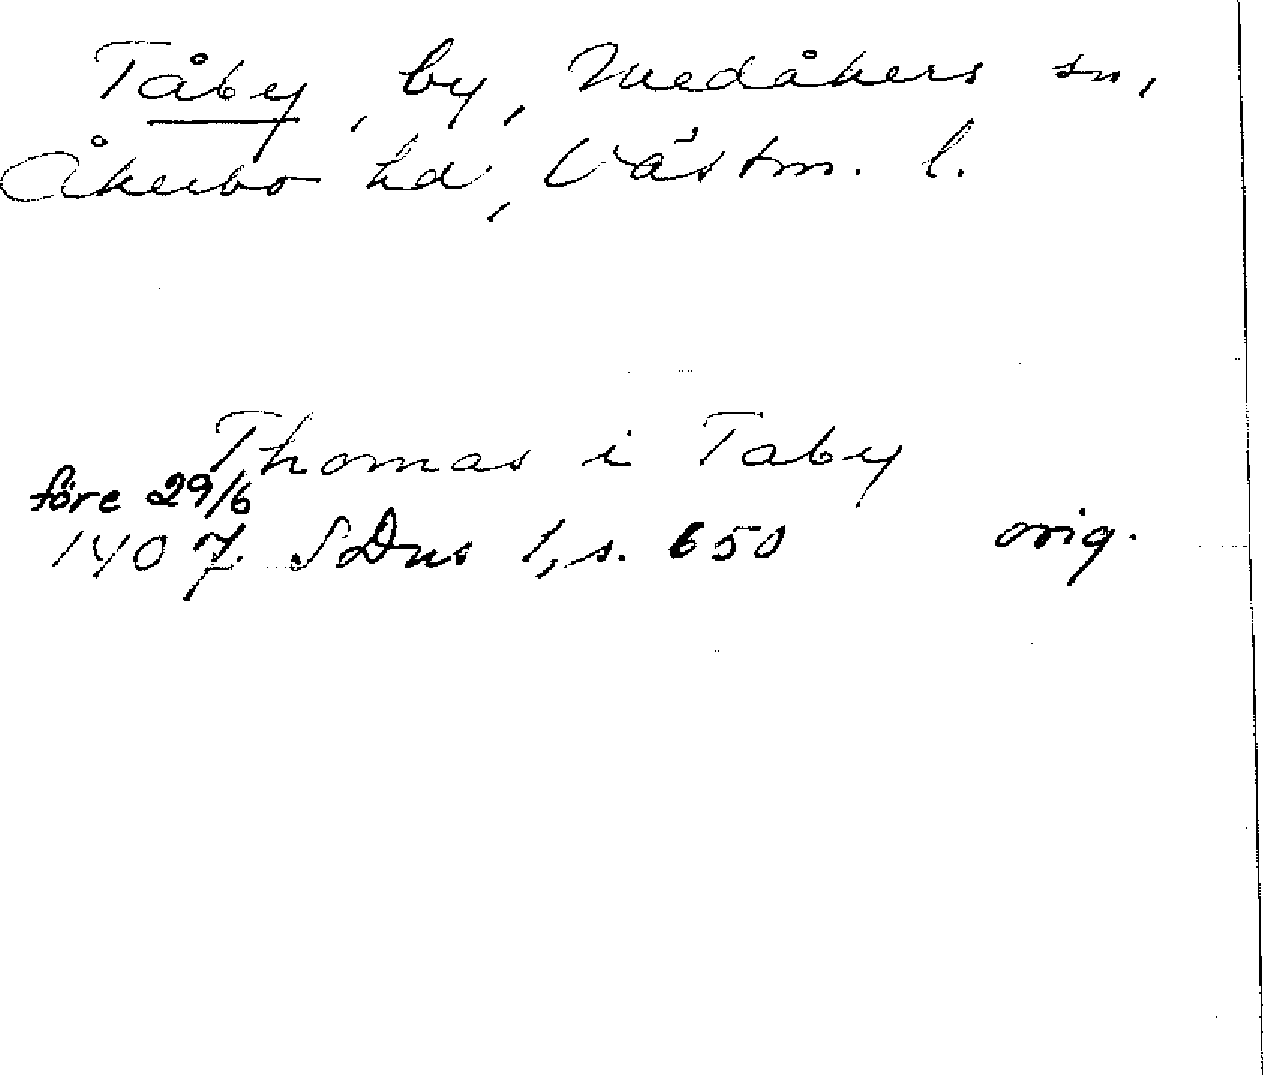 Tåby, by, Medåkers sn,
Åkerbo hd, Västm. l.
Thomas i Taby
före 29/6
1407. SDns 1, s. 650 orig.